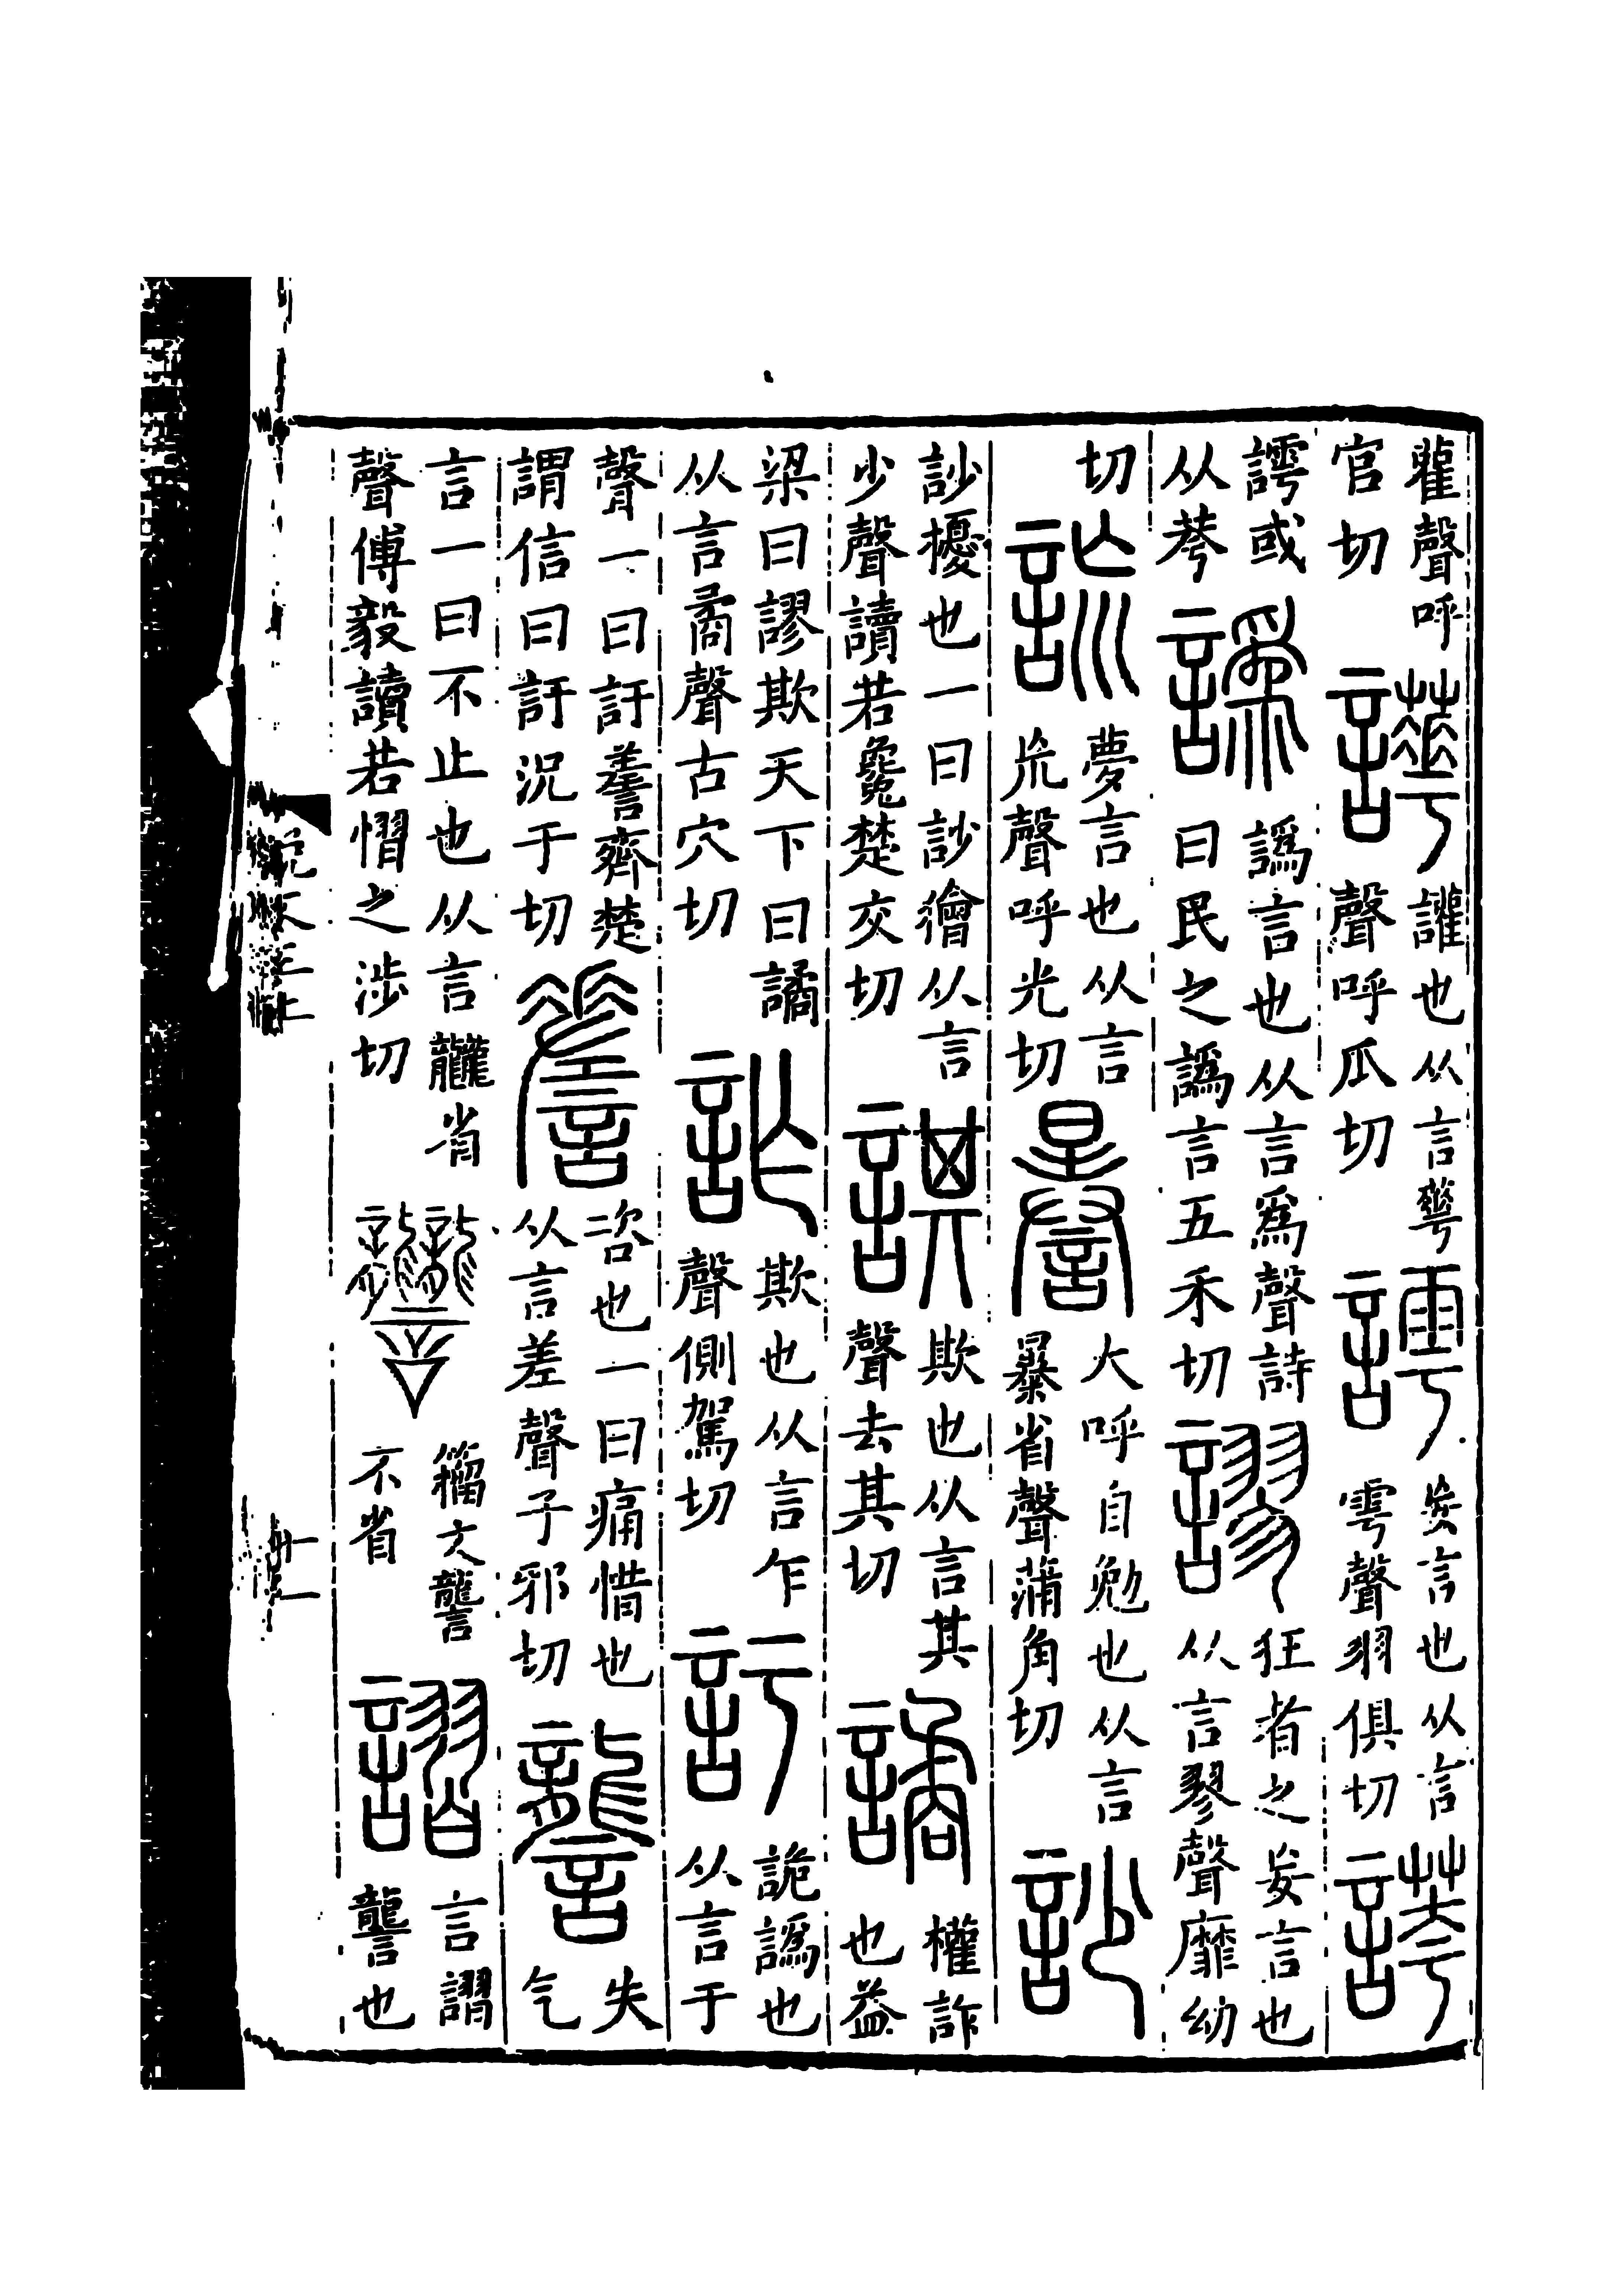 雚聲呼官切 譁 讙也从言華聲呼瓜切 謣 妄言也从言雩聲羽俱切 䓊
謣或从荂 譌 譌言也从言爲聲詩曰民之譌言五禾切 謬 狂者之妄言也从言翏聲靡幼
切 詤 夢言也从言㠩聲呼光切 謈 大呼自勉也从言暴省聲蒲角切 訬
訬擾也一曰訬獪从言少聲讀若毚楚交切 諆 欺也从言其聲去其切 譎 權詐也益
梁曰謬欺天下曰譎从言矞聲古穴切 詐 欺也从言乍聲側駕切 訏 詭譌也从言于
聲一曰訏䜺齊楚謂信曰訏況于切 䜺 咨也一曰痛惜也从言差聲子邪切 讋 失气
言一曰不止也从言龖省聲傅毅讀若慴之涉切 籀文讋不省 謵 言謵讋也
説文三上